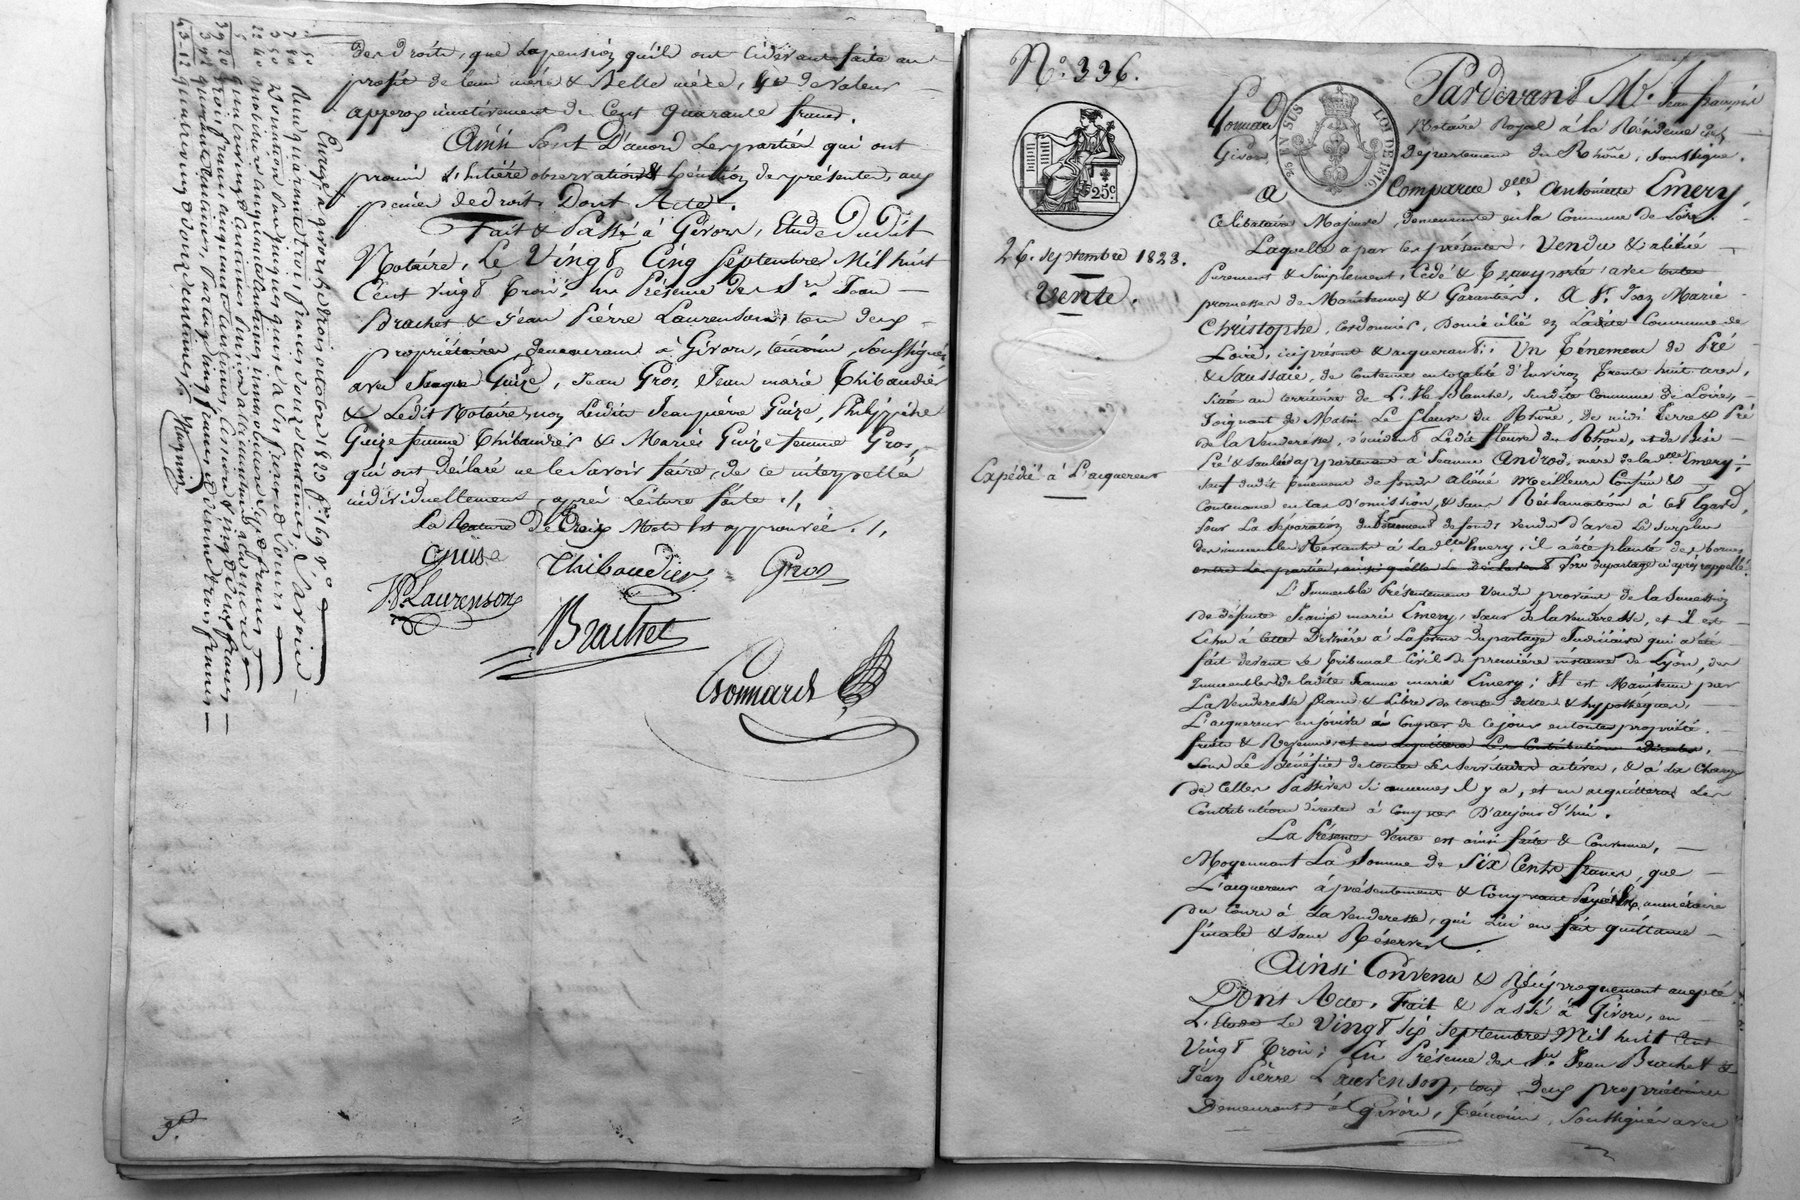 des droits, que la pension qu'ils ont cidevant faite au
profit de leur mère & Belle mère, est de valeur
approximativement de Cent quarante francs.
Ainsi sont D'accord les parties qui ont
promis L'entière observation & exécution des présentes, aux
peines de droit. Dont Acte.
Fait & Passé à Givors, Etude Dudit
Notaire, Le Vingt Cinq Septembre Mil huit
Cent vingt Trois: En Présence des Srs. Jean
Brachet & Jean Pierre Laurenson, tous deux
propriétaires, demeurant à Givors, témoins, soussignés
avec Jacques Guize, Jean Gros, Jean marie Thibaudier
& Ledit Notaire, non Ledits Jean pierre Guize, Philippine
Guize femme Thibaudier & Marie Guize femme Gros,
qui ont déclaré ne le savoir faire, de ce interpellés
individuellement, après Lecture faite ./.
La Rature de Trois Mots est approuvée ./.
guise Thibaudier Gros
J.P. Laurenson
Brachet
Bonnard
Enregé à givors le trois octobre 1823 fo. 169 vo.
Reçu quarante trois francs douze centimes, Savoir
43-12 quatre vingt douze centimes.
No. 336.
25c.
25 EN SUS
LOI DE
26. septembre 1823.
Vente.
Expédié à L'acquereur
Pardevant Me. Jean françois
Notaire Royal à la Résidence de
Givors, Département du Rhône, soussigné.
a Comparue delle. Antoinette Emery,
Célibataire Majeure, demeurante en la Commune de Loire.
Laquelle a par ces présentes, Vendu & aliéné
Purement & Simplement, Cédé & Transporté, avec toutes
promesses de Maintenues & Garanties. A Sr. Jean Marie
Christophe, Cordonnier, Domicilié en Ladite Commune de
Loire, ici présent & acquerant: Un Ténement de Pré
& Saussaie, de Contenue en totalité d'Environ trente huit ares,
Situé au territoire de L'Isle Blanche, Susdite Commune de Loire,
Joignant de Matin Le fleuve du Rhône, de midi Terre & Pré
de la Venderesse, d'occident Ledit fleuve du Rhône, et de Bise
Pré & saulée appartenant à Jeanne Androd, mère de la delle Emery;
Sauf dudit ténement de fonds aliéné Meilleurs Confins &
Contenue en cas D'omission, & sans Réclamation à cet Egard,
Pour La séparation du Tènement de fonds vendu d'avec Le Surplus
des immeubles Restants à La dlle. Emery, il a été planté des bornes
L'Immeuble Présentement Vendu provient de la Succession
de défunte Jeanne marie Emery, Sœur de la Venderesse, et il est
Echu à Cette Dernière à La forme du partage Judiciaire qui a été
fait devant Le Tribunal Civil de première instance de Lyon, des
Immeubles de ladite Jeanne marie Emery; Il est Maintenu par
La Venderesse franc & Libre de toutes dettes & hypothèques.
L'acquereur en jouira à Compter de ce jour en toute propriété
fruits & Revenus, et en acquittera Les Contributions directes,
sous Le Bénéfice de toutes Les servitudes actives, & à la Charge
de Celles Passives si aucunes il y a, et en acquittera Les
Contributions directes à Compter D'aujourd'hui.
La Présente Vente est ainsi faite & Convenue,
Moyennant La Somme de Six Cents francs, que
L'acquereur à présentement & Comptant Payée en numéraire
du Cours à La Venderesse, qui Lui en fait quittance
finale & sans Réserves.
Ainsi Convenu & Réciproquement accepté
Dont Acte. Fait & Passé à Givors, en
L'Etude Le Vingt Six Septembre Mil huit Cent
Vingt Trois; En Présence des Srs. Jean Brachet &
Jean Pierre Laurenson, tous Deux propriétaires
Demeurants à Givors, Témoins, Soussignés avec